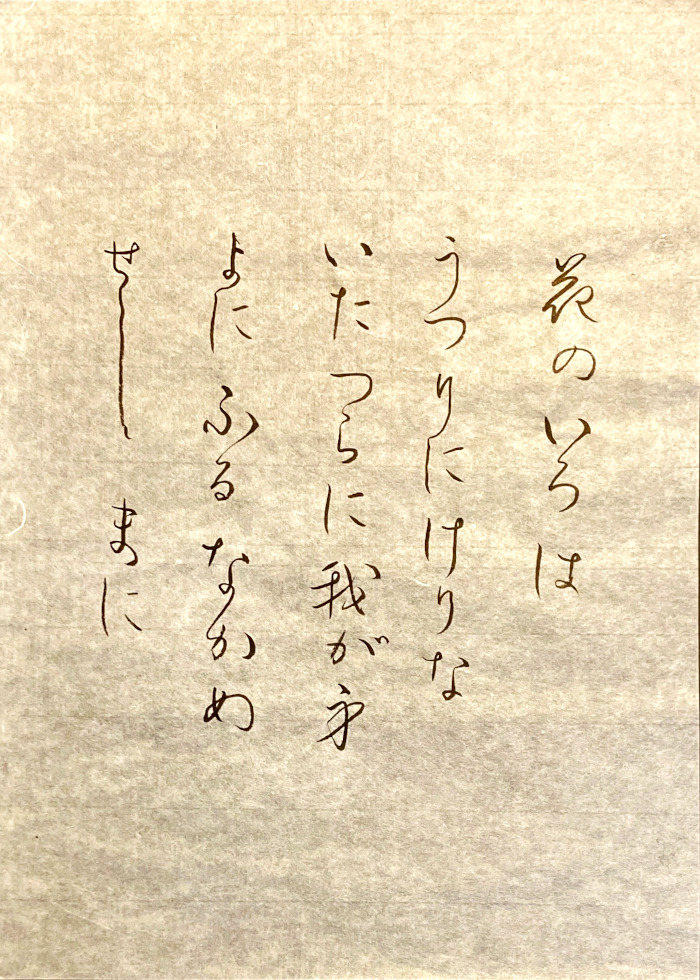 花のいろは
うつりにけりな
いたつらに我が身
よに ふる なかめ
せし まに